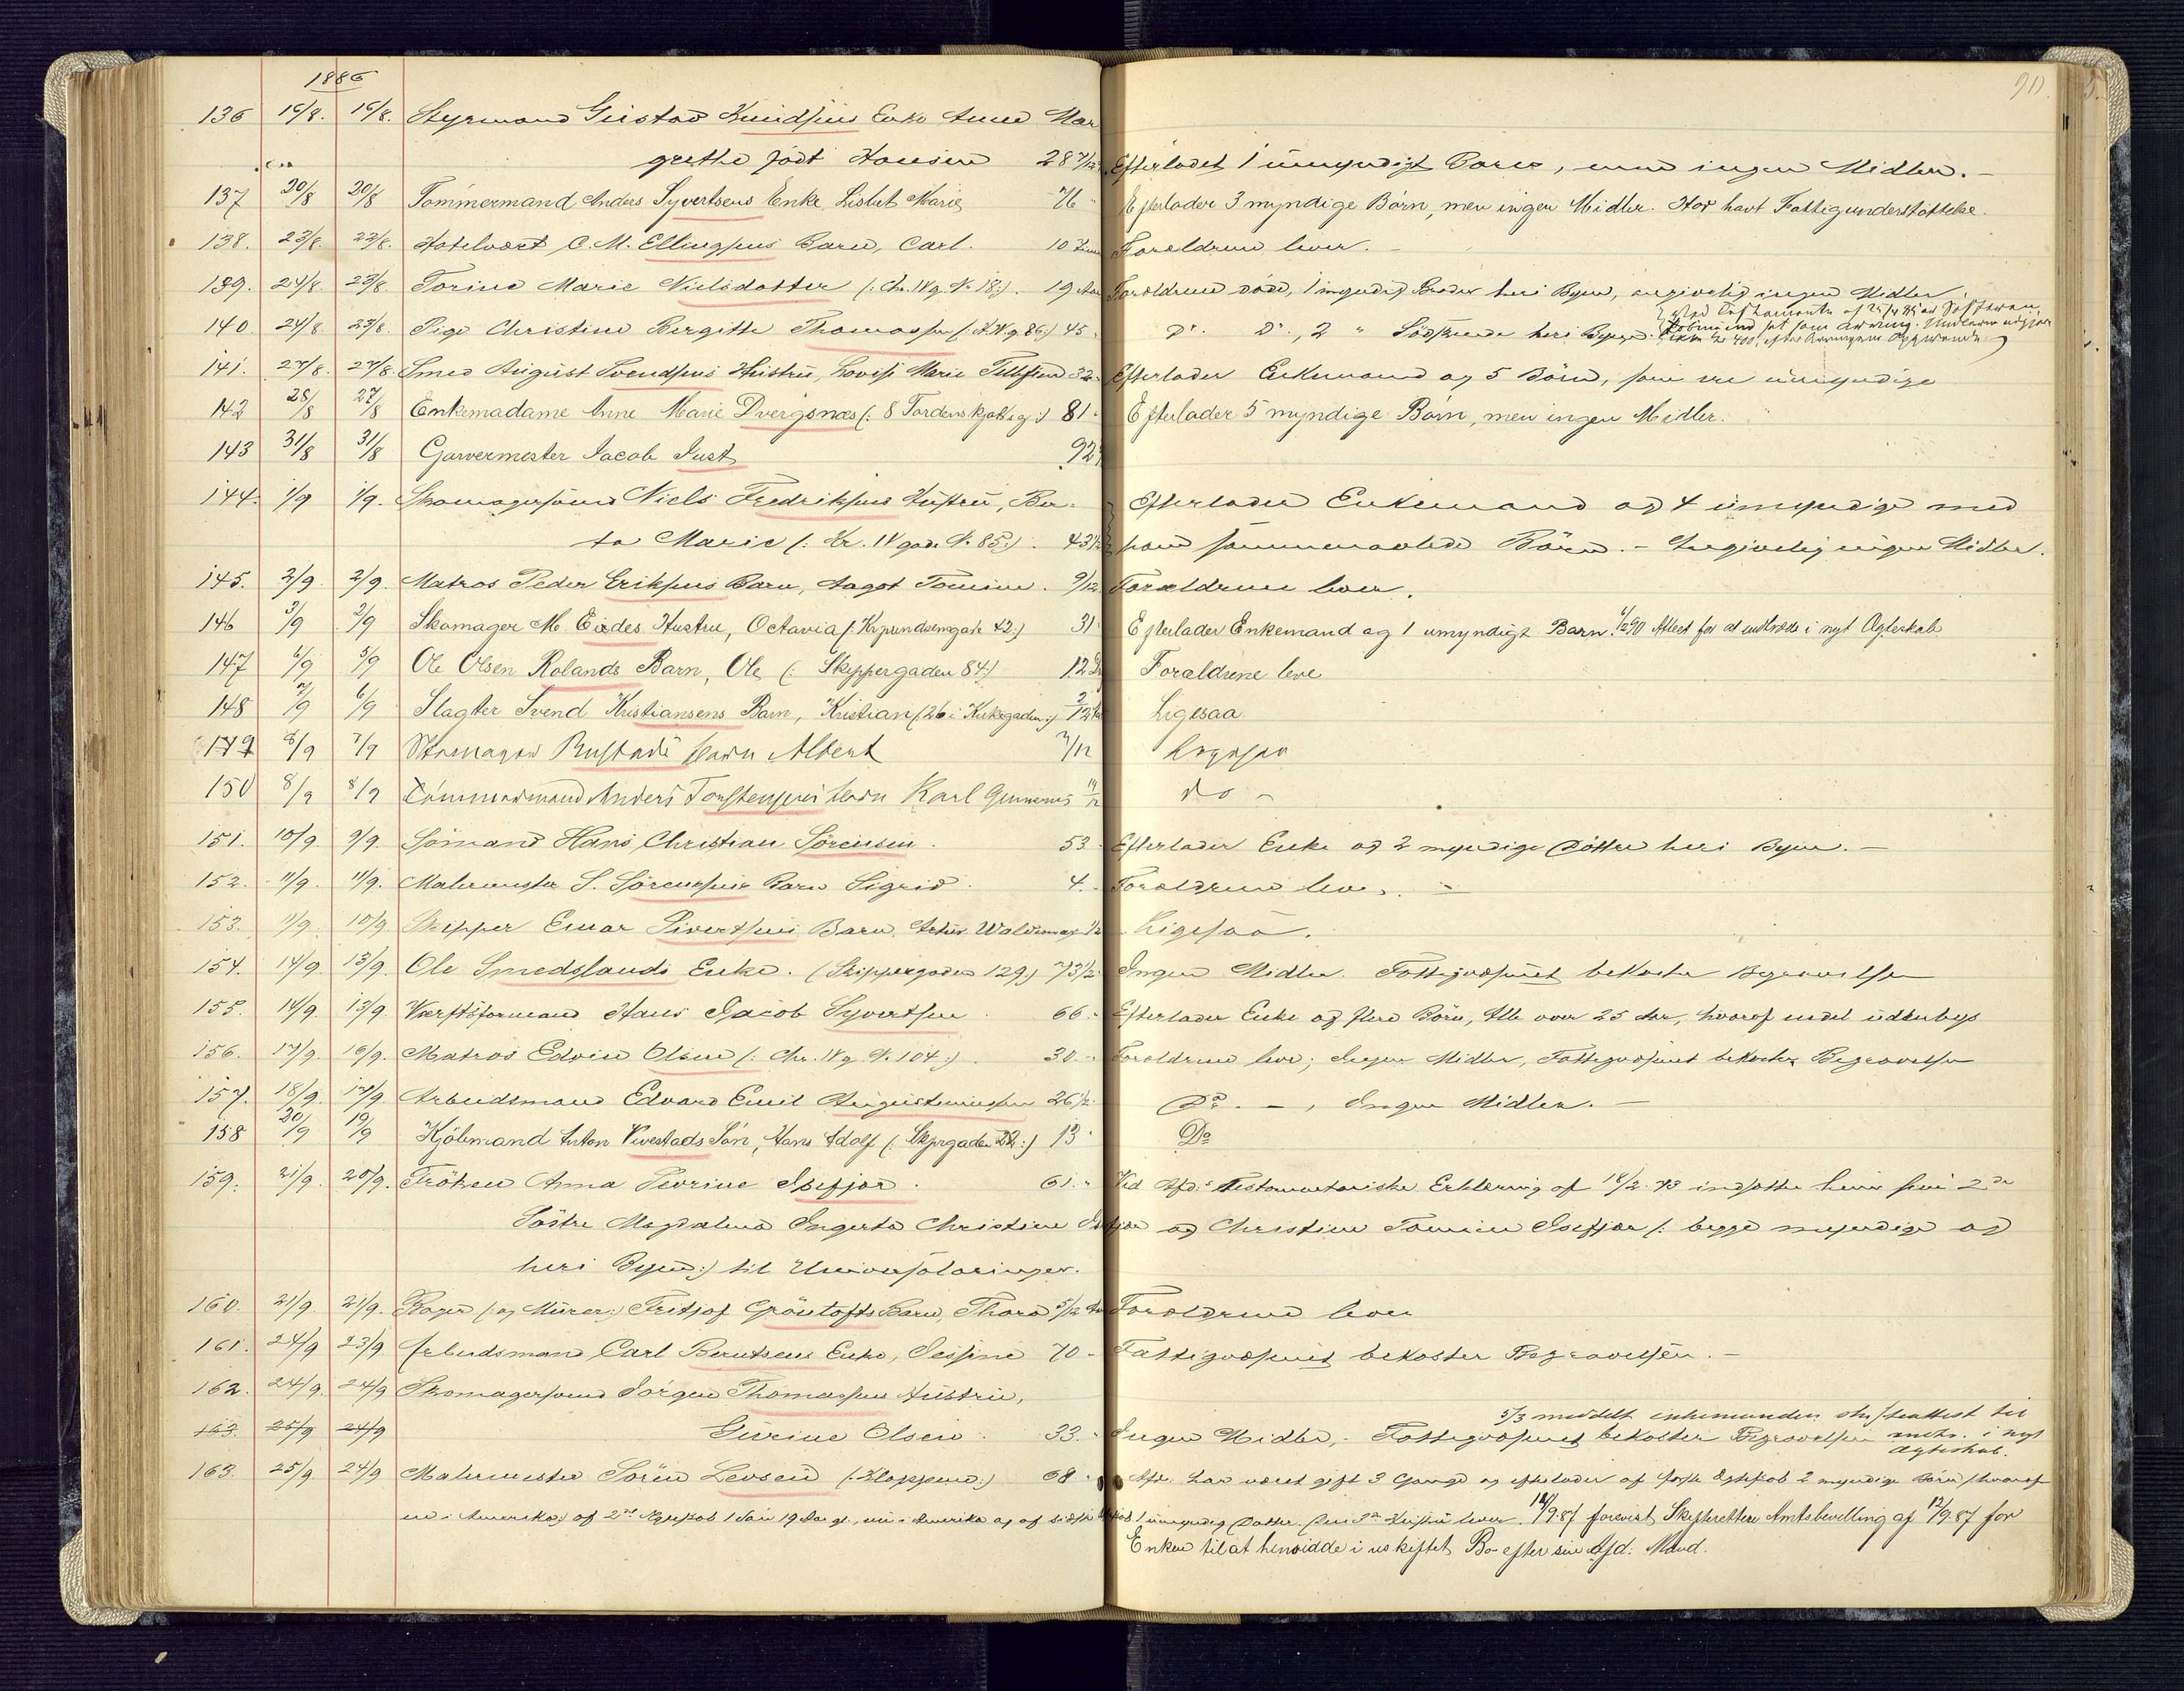 1886
90.
136 16/8. 16/8. Styrmand Gustav Knudsens Enke Anne Mar
grethe född Hansen 28 7/12 Efterladet 1 umyndigt Barn, men ingen Midler. —
137 20/8 20/8 Tømmermand Anders Syvertsens Enke, Lisbet Marie, 76 " Efterlader 3 myndige Børn, men ingen Midler. Har havt Fattigunderstøttelse.
138. 23/8. 23/8. Hotelvært C. M. Ellingsens Barn, Carl. 10 Forældrene lever. —
139. 24/8. 23/8. Torine Marie Nielsdatter (: Chr. IV g. N. 18:). 19 Aar Forældrene døde, 1 myndig Broder heri Byen, angivelig ingen Midler.
140. 24/8. 23/8. Pige Christine Birgitte Thomassen (: 86:) 45 " Do. Do., 2 " Södskende heri Byen.
141. 27/8. 27/8. Smed August Svendsens Hustru, Lovise Marie 32 Efterlader Enkemand og 5 Børn, som ere umyndige
142 28/8 27/8 Enkemadame Anne Marie Dvergsnæs (: 8 Tordenskjoldsg:) 81 " Efterlader 5 myndige Børn, men ingen Midler.
143 31/8 31/8 Garvermester Jacob Just 92
144. 1/9 1/9. Skomagersvend Niels Fredriksens Hustru, Ber- Efterlader Enkemand og 4 umyndige med
ta Marie (: Kr. IV gade N. 85:). 43 1/2 ham sammenavlede Børn. — Angivelig ingen Midler.
145. 2/9. 2/9. Matros Peder Eriksens Barn, Aagot Tomine. 9/12 Forældrene lever.
146 3/9 2/9 Skomager M. Eides Hustru, Octavia (: 42:) 31 Efterlader Enkemand og 1 umyndigt Barn. 6/2 90 Attest for at indtræde i nyt Ægteskab
147 6/9 5/9 Ole Olsen Rolands Barn, Ole (: Skippergaden 84:) 12 Forældrene leve
148 7/9 6/9 Slagter Svend Kristiansens Barn, Kristian (: 26 i Kirkegaden:) 2/12 Ligesaa
149 8/9 7/9 Skomager Rustads Barn Albert 7/12 Ligesaa
150 8/9 8/9 Tømmermand Anders Torstensens Barn Karl 11/12 do —
151. 10/9 9/9. Sømand Hans Christian Sörensen. 53 Efterlader Enke og 2 myndige Døttre heri Byen. —
152. 11/9. 11/9. Malermester S. Sörensens Barn Sigrid. 4. Forældrene leve. —
153. 11/9. 10/9. Skipper Einar Sivertsens Barn, Arthur Waldemar 1/2 Ligesaa.
154. 14/9. 13/9. Ole Smedslands Enke. (Skippergaden 129) 73 1/2 Ingen Midler. Fattigvæsenet bekoster Begravelsen
155. 14/9. 13/9. Værftsformand Hans Jacob Syvertsen. 66. Efterlader Enke og flere Børn, Alle over 25 Aar, hvoraf endel udenbys
156. 17/9. 16/9. Matros Edvin Olsen (: Chr. IV g. N. 104:). 30. Forældrene leve; Ingen Midler, Fattigvæsenet bekoster Begravelsen
157. 18/9. 17/9. Arbeidsmand Edvard Emil Augustiniussen 26 1/2 Do. —, Ingen Midler. —
158 20/9 19/9 Kjølemand Anton Vivestads Søn, Hans Adolf (: Skprgaden 22:) 13 " Do
159. 21/9. 20/9. Frøken Anna Severine Isefjær. 61. " Ved Afd.s testamentariske Erklæring af 18/2 73 indsatte hun sine 2de
Søstre Magdalena Ingerta Christine Isefjær og Christine Tomine Isefjær (: begge myndige og
heri Byen:) til Universalarvinger.
160. 21/9. 21/9. Bager (: og Murer:) Fritjof Grönstofts Barn, Thora 5/12 Forældrene lever
161. 24/9 23/9 Arbeidsmand Carl Berntsens Enke, Sessine 70 – Fattigvæsenet bekoster Begravelsen. —
162. 24/9. 24/9 Skomagersvend Jørgen Thomassens Hustru,
5/3 meddelt enkemanden skifteattest til
163. 25/9 24/9 Gurine Olsen. 33. " Ingen Midler, – Fattigvæsenet bekoster Begravelsen indtr. i nyt
ægteskab.
163. 25/9 24/9 Malermester Søren Levsen (: Kloppene:) 68 " Afd. har været gift 3 Gange og efterlader af første Egteskab 2 myndige Børn (hvoraf
en i Amerika) af 2det Egteskab 1 Søn 19 Aar gl., nu i Amerika og af sidste Egteskab 1 umyndig Datter. Hans 3de Hustru lever. 14/9.87 forevist Skifteretten Amtsbevilling af 12/9.87 for
Enken til at hensidde i uskiftet Bo efter sin Afd. Mand.